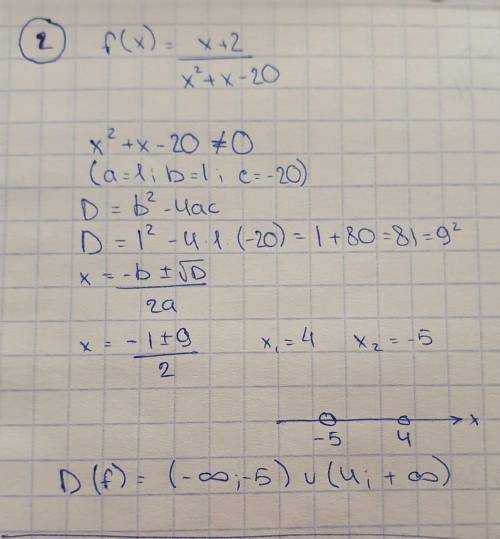 2 f(x) = x+2 / x²+x-20
x²+x-20 ≠0
(a=1; b=1; c=-20)
D = b²-4ac
D = 1² - 4·1·(-20) = 1+80 =81=9²
x = -b ±√D / 2a
x = -1±9 / 2 x₁=4 x₂=-5
-5 4 x
D(f) = (-∞;-5) ∪ (4; +∞)